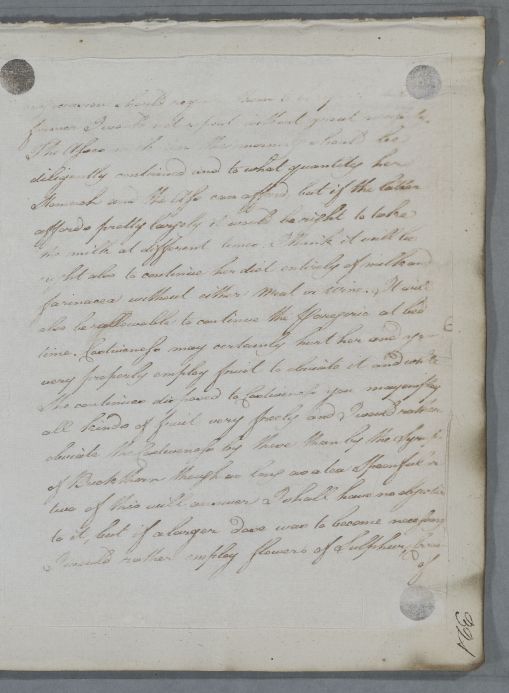 occasion should
former I would not repeat without great necessity.
The Asses milk in the morning should be
diligently continued and to what quantity her
Stomach and the Ass can afford, but if the latter
affords pretty largely it would be right to take
the milk at different times. I think it will be
right also to continue her diet entirely of milk and
farinacea without either Meat or wine. It will
also be allowable to continue the Paregoric at bed
time. Costiveness may certainly hurt her and you
very properly employ fruit to obviate it and while
She continues disposed to Costiveness you may employ
all kinds of fruit very freely and I would rather
obviate the Costiveness by these than by the Syrup
of Buckthorn though as long as a tea Spoonful or
two of this will answer I shall have no objection
to it, but if a larger dose was to become necessary
I would rather employ flowers of Sulphur,
of
321